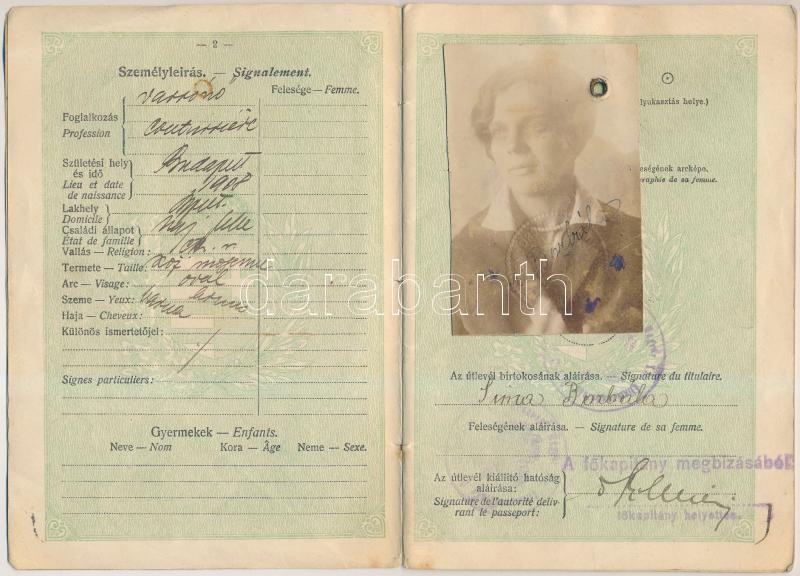 — 2 —
Személyleírás. — Signalement.
Felesége — Femme.
varrónő
Foglalkozás
Profession
couturière
Születési hely
és idő
Lieu et date
de naissance
Budapest
1908
Lakhely
Domicile
Családi állapot
État de famille
Vallás — Religion:
Termete — Taille:
Arc — Visage: ovál
Szeme — Yeux:
Haja — Cheveux:
Különös ismertetőjel:
Signes particuliers:
Gyermekek — Enfants.
Neve — Nom Kora — Âge Neme — Sexe.
lyukasztás helye.)
eségének arcképe.
graphie de sa femme.
darabanth
Az útlevél birtokosának aláírása. — Signature du titulaire.
Sima Borbála
Feleségének aláírása. — Signature de sa femme.
A főkapitány megbízásából
Az útlevél kiállító hatóság
aláírása:
Signature de l'autorité déliv-
rant le passeport:
főkapitány helyettes.